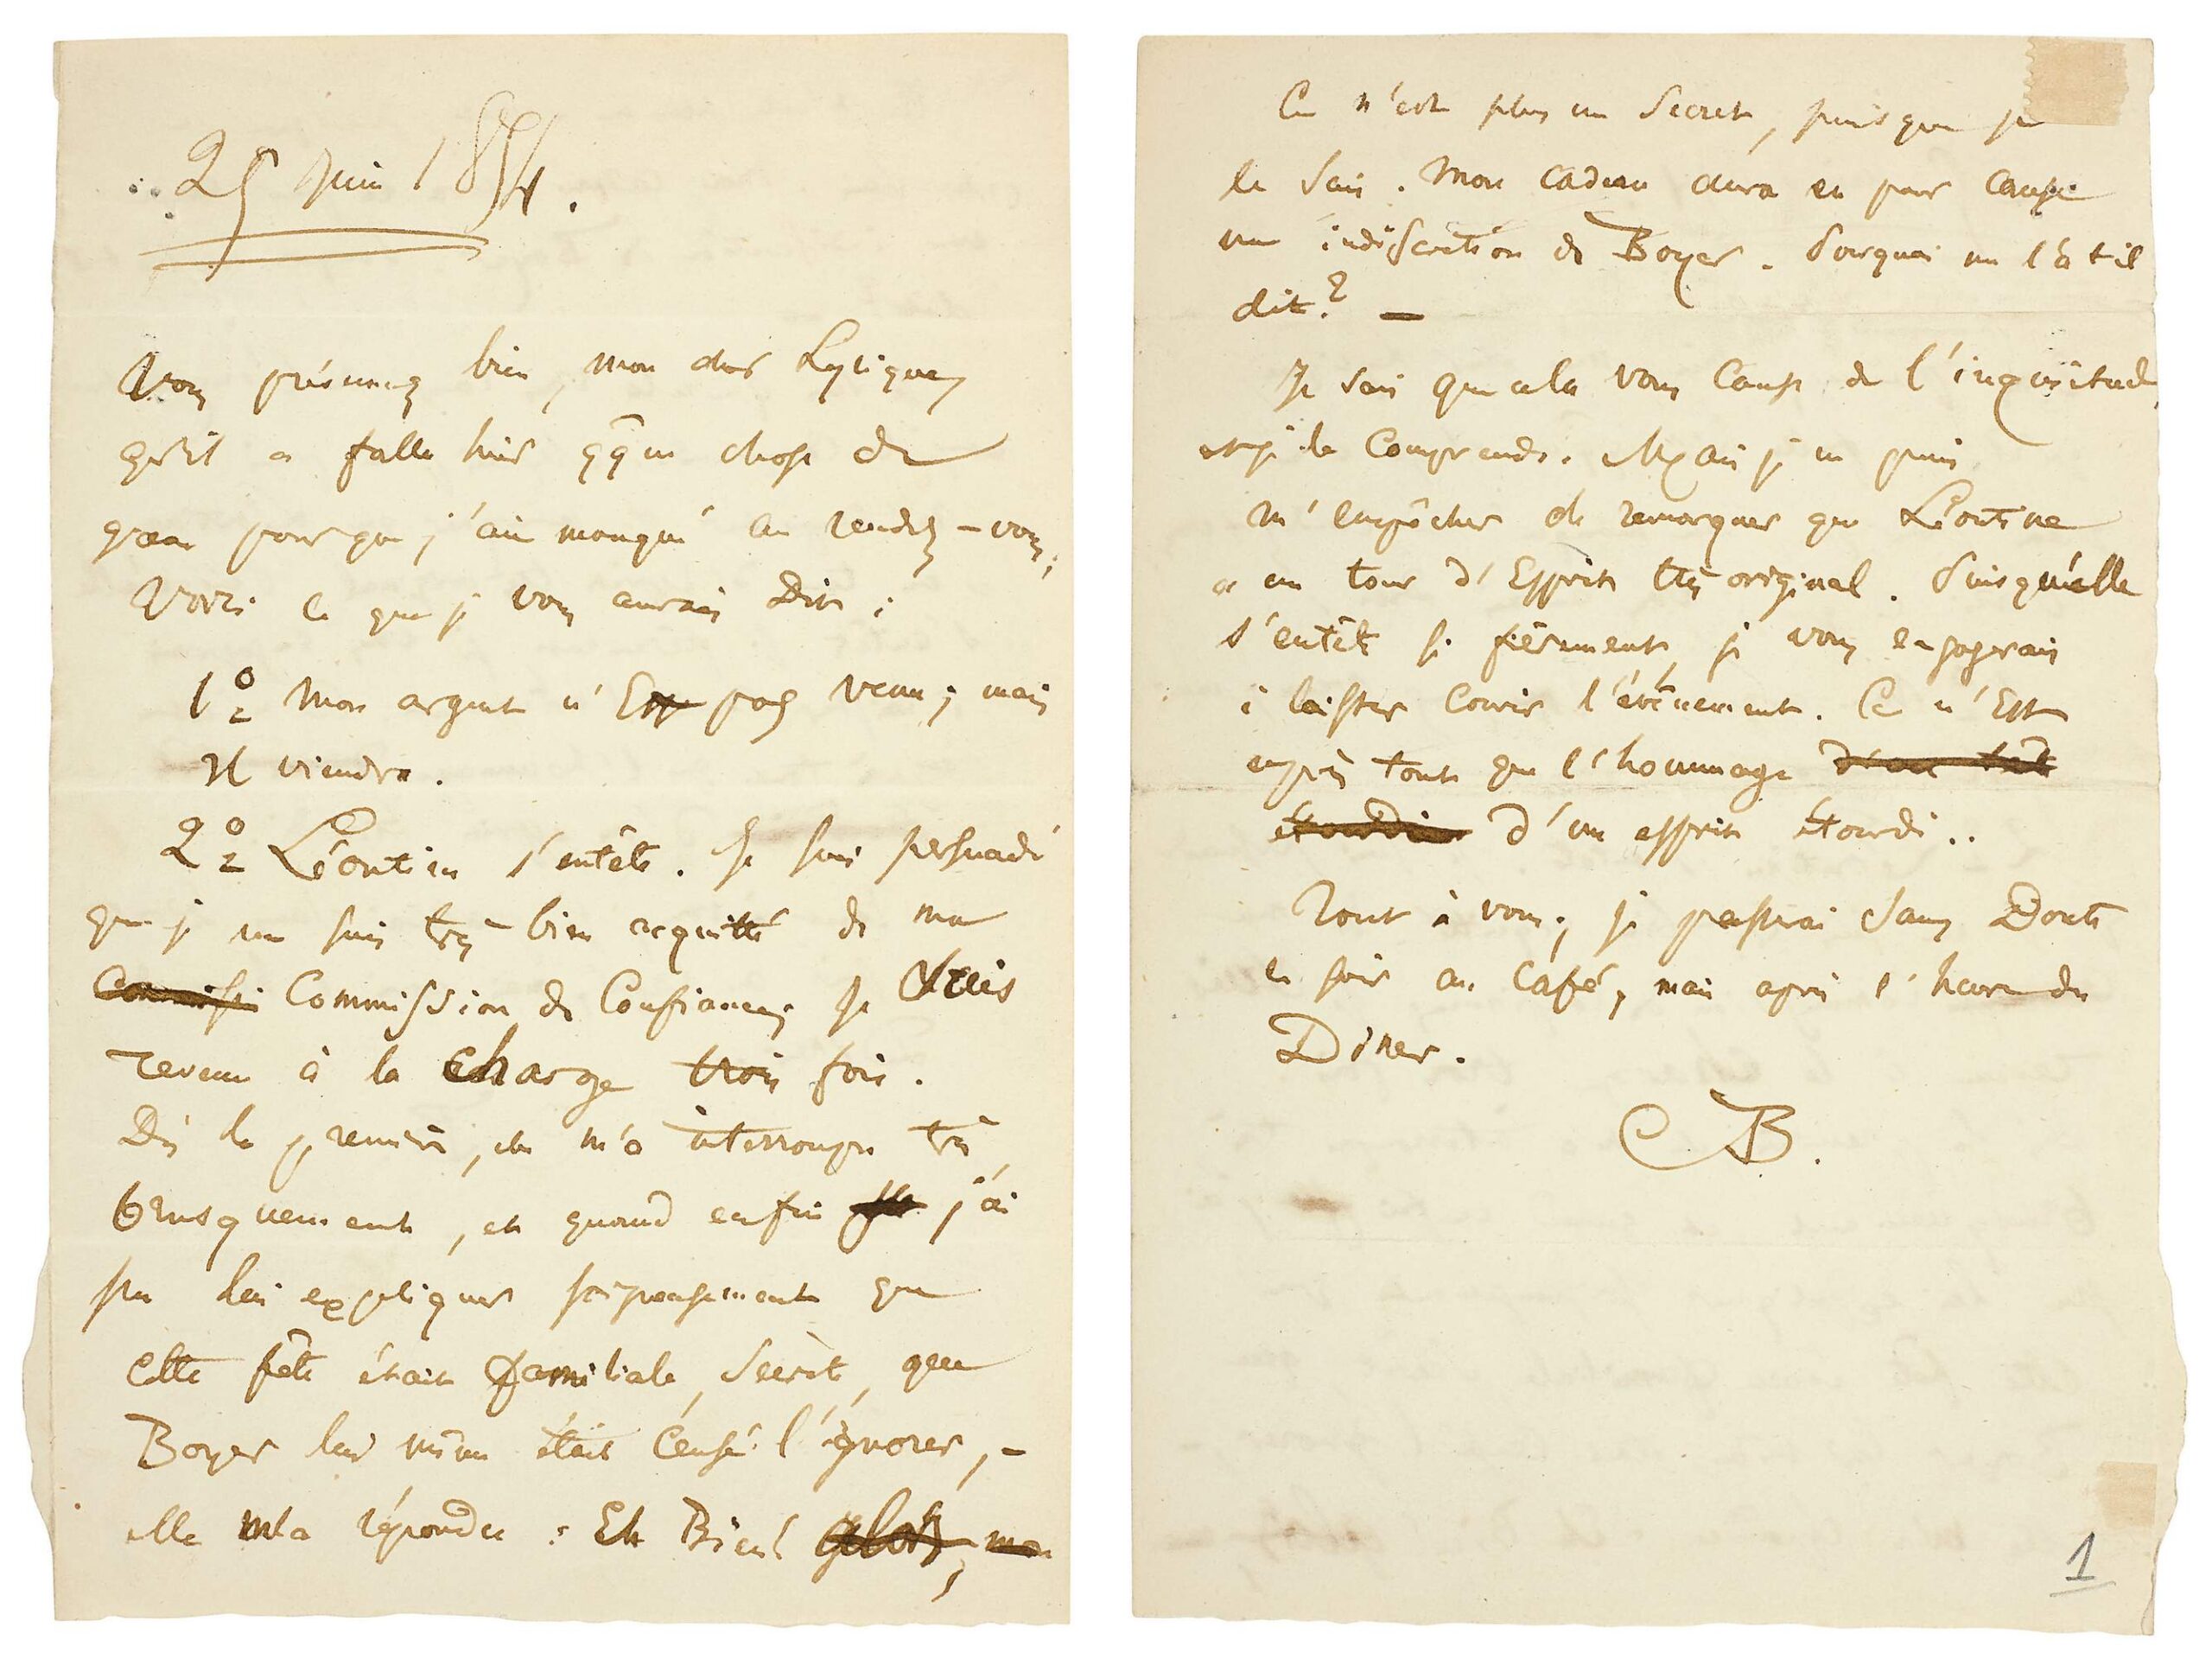 25 Juin 1854.
Vous présumez bien, mon cher
qu'il a fallu hier qque chose de
grave pour que j'aie manqué au rendez-vous;
Voici ce que je vous aurais Dit :
1º Mon argent n'Est pas venu ; mais
Il viendra.
2º Léontine s'entête. Je suis persuadé
que je me suis très-bien acquitté de ma
Commissi Commission de Confiance; je suis
revenu à la charge trois fois.
Dès la première, elle m'a interrompu très
brusquement, et quand enfin j'ai
pu lui expliquer soigneusement que
cette fête était familiale, secrète, que
Boyer lui même était censé l'ignorer, -
elle m'a répondu : Eh Bien! alors,
Ce n'est plus un secret, puisque je
le sais. Mon cadeau aura eu pour cause
une indiscrétion de Boyer. Pourquoi me l'a t-il
dit? —
Je sais que cela vous cause de l'inquiétude,
et je le comprends. Mais je ne puis
m'empêcher de remarquer que Léontine
a un tour d'Esprit très original. Puisqu'elle
s'entête si fièrement, je vous engagerais
à laisser courir l'évènement. Ce n'Est
après tout que l'hommage d'une tête
étourdie d'un esprit étourdi..
Tout à vous; je passerai sans Doute
ce soir au Café, mais après l'heure du
Dîner.
CB.
1